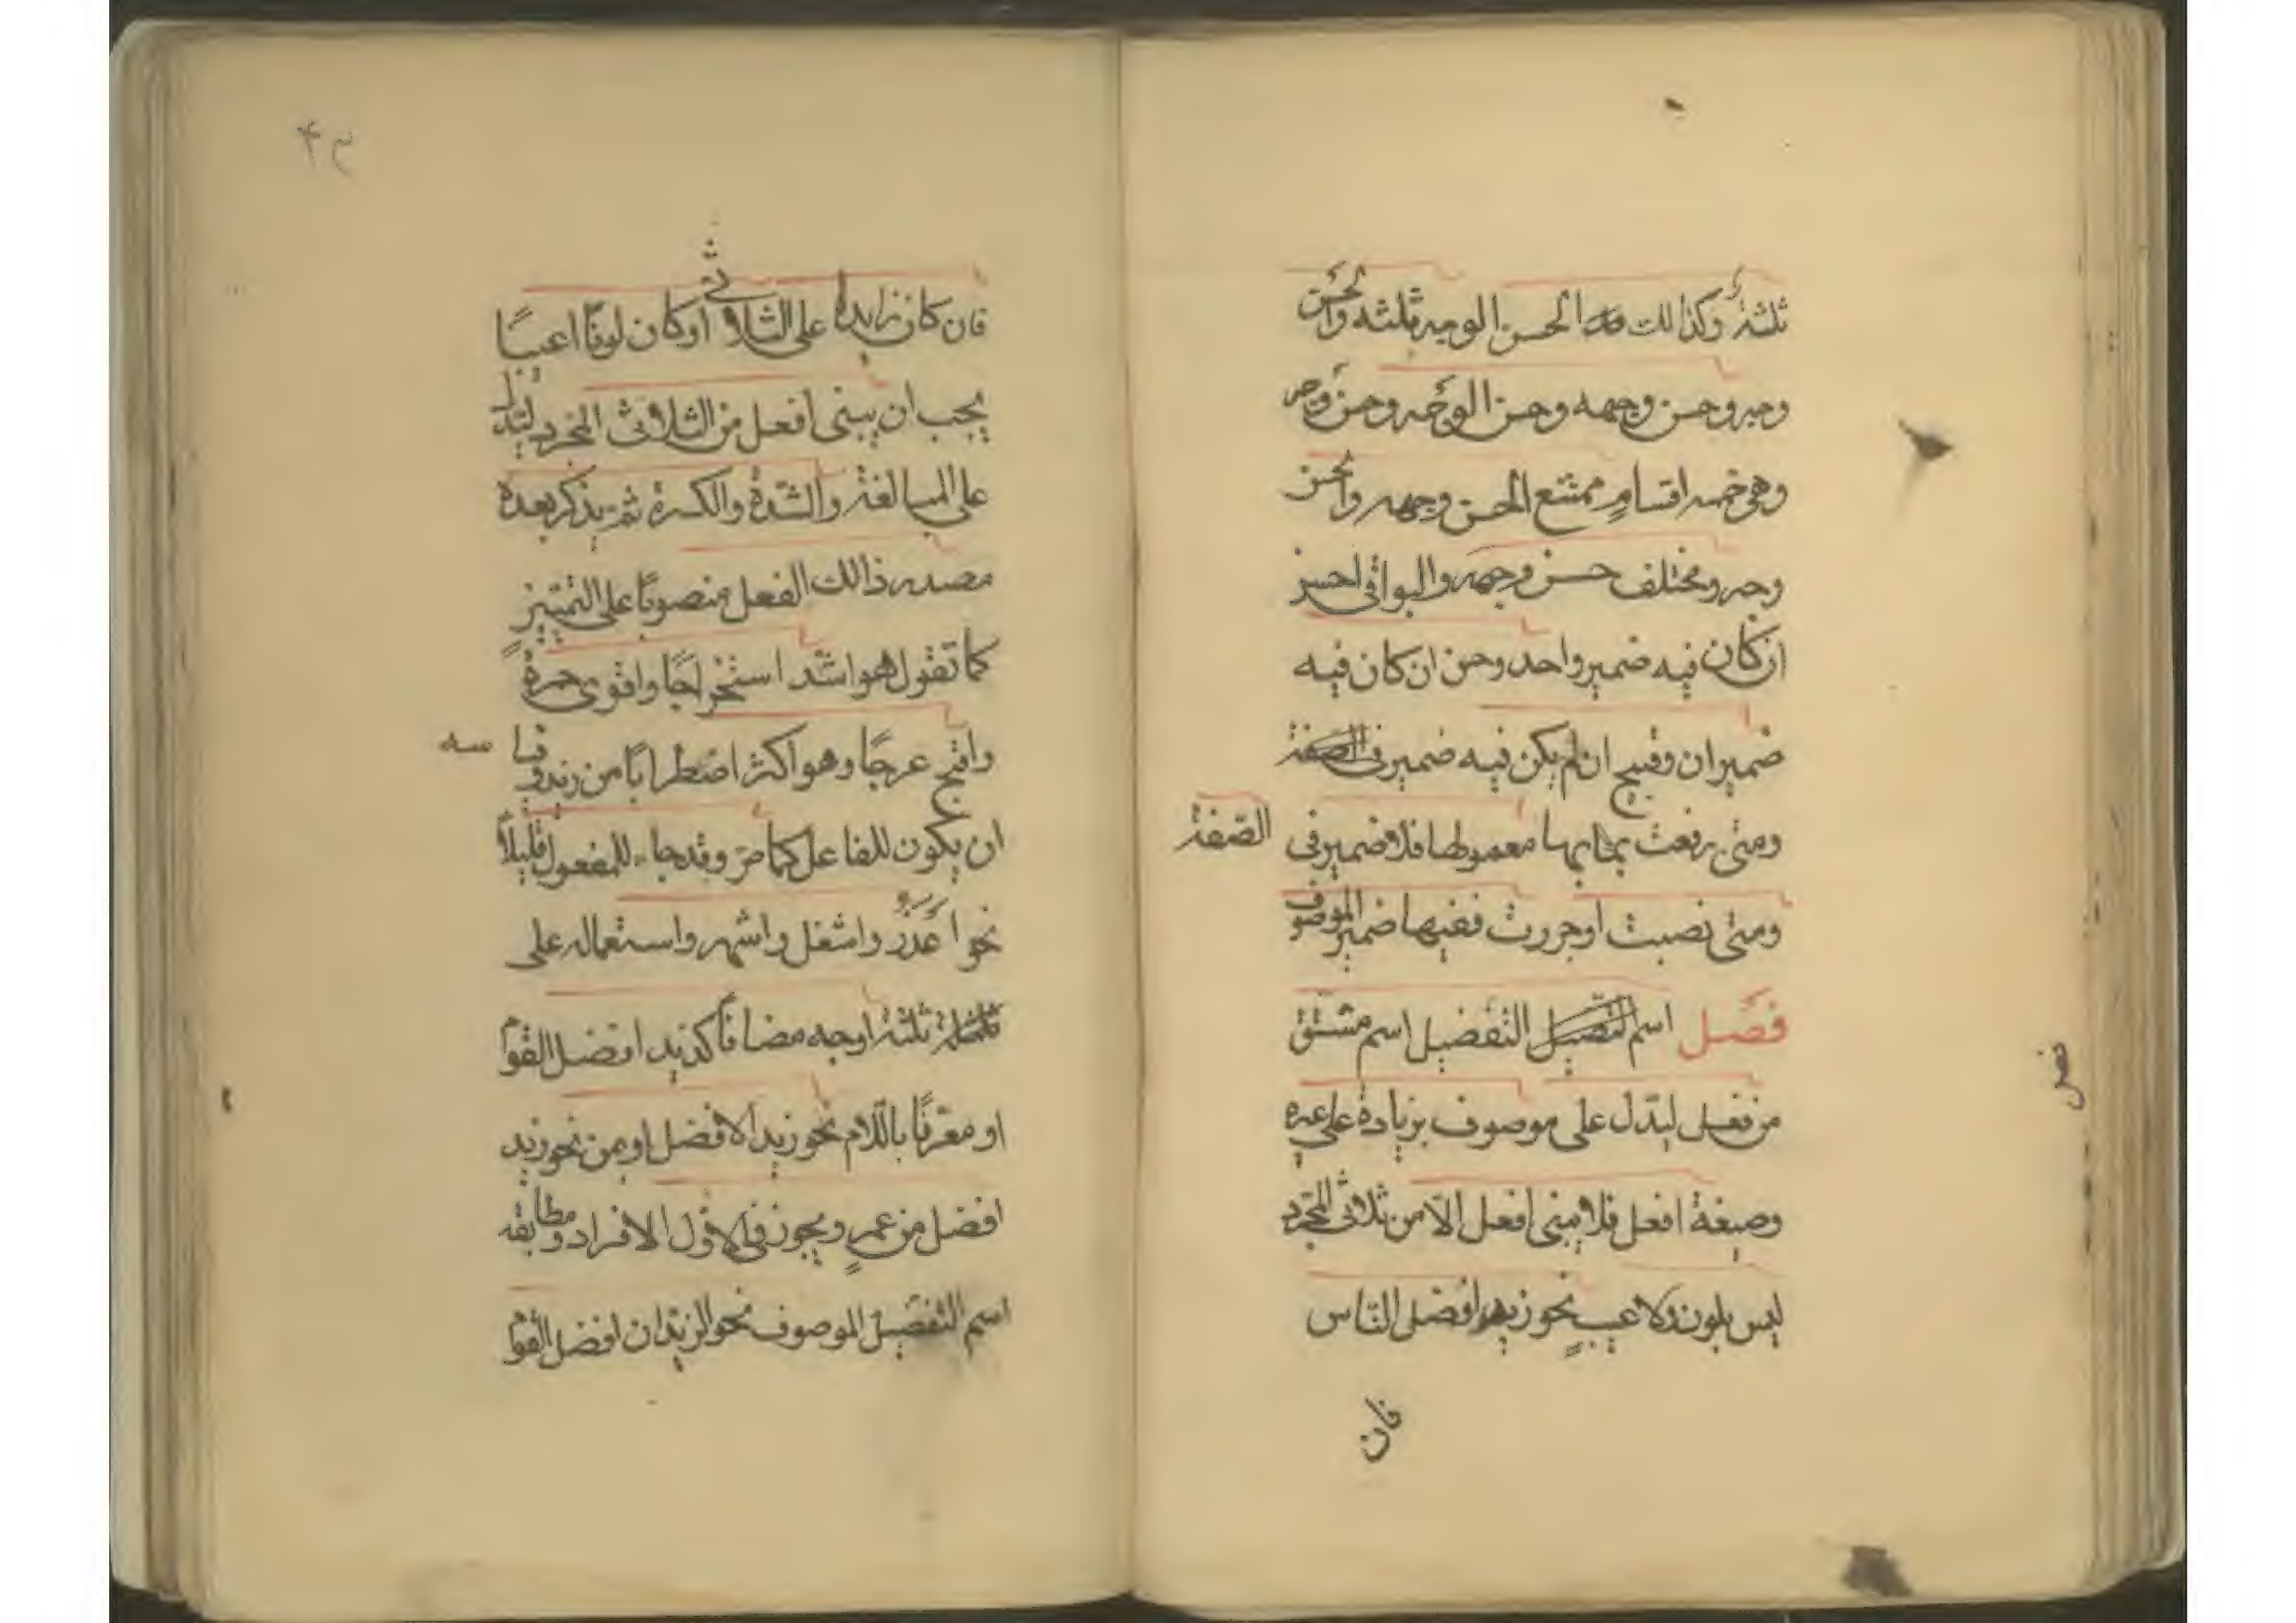 ثلثة وكذالك الحسن الوجه ثلثه والحسن
وجه وحسن وجهه وحسن الوجه وحسن وجه
وهي خمسه اقسامٍ ممتنع الحسن وجهه والحسن
وجه ومختلف حسن وجهه والبواقى احسن
ان كان فيه ضمير واحد وحسن ان كان فيه
ضميران وقبيح ان لم يكن فيه ضمير فى الصفة
ومتى رفعت بها معمولها فلا ضمير فى الصّفة
ومتى نصبت اوجررت ففيها ضمير الموصوف
فصل اسم التفضيل اسم مشتق
من فعل ليدّل على موصوف بزيادة على غيره
وصيغة افعل فلا يبنى افعل الّا من ثلاثى المجرّد
ليس بلون ولا عيبٍ نحو زيد افضل النّاس
فان
۴۲
فان كان زايدا على الثلاثى اوكان لونًا اعيبًا
يجب ان يبنى افعل من الثلاثى المجرد ليدل
على المبالغة والشّدة والكسرة ثم يذكر بعده
مصدر ذالك الفعل منصوبًا على التمييز
كما تقول هو اشد استخراجًا واقوى حمرةً
واقبح عرجًا وهو اكثر اضطرابًا من زيد وقياسه
ان يكون للفاعل كما مرّ وقد جاء للمفعول قليلاً
نحو اعذر واشغل واشهر واستعماله على
ثلثة اوجه مضافًا كزيد افضل القوم
او معرّفًا باللّام نحو زيد الافضل او بمن نحو زيد
افضل من عمرٍ ويجوز فى الاوّل الافراد ومطابقه
اسم التفضيل الموصوف نحو الزيدان افضل القوم